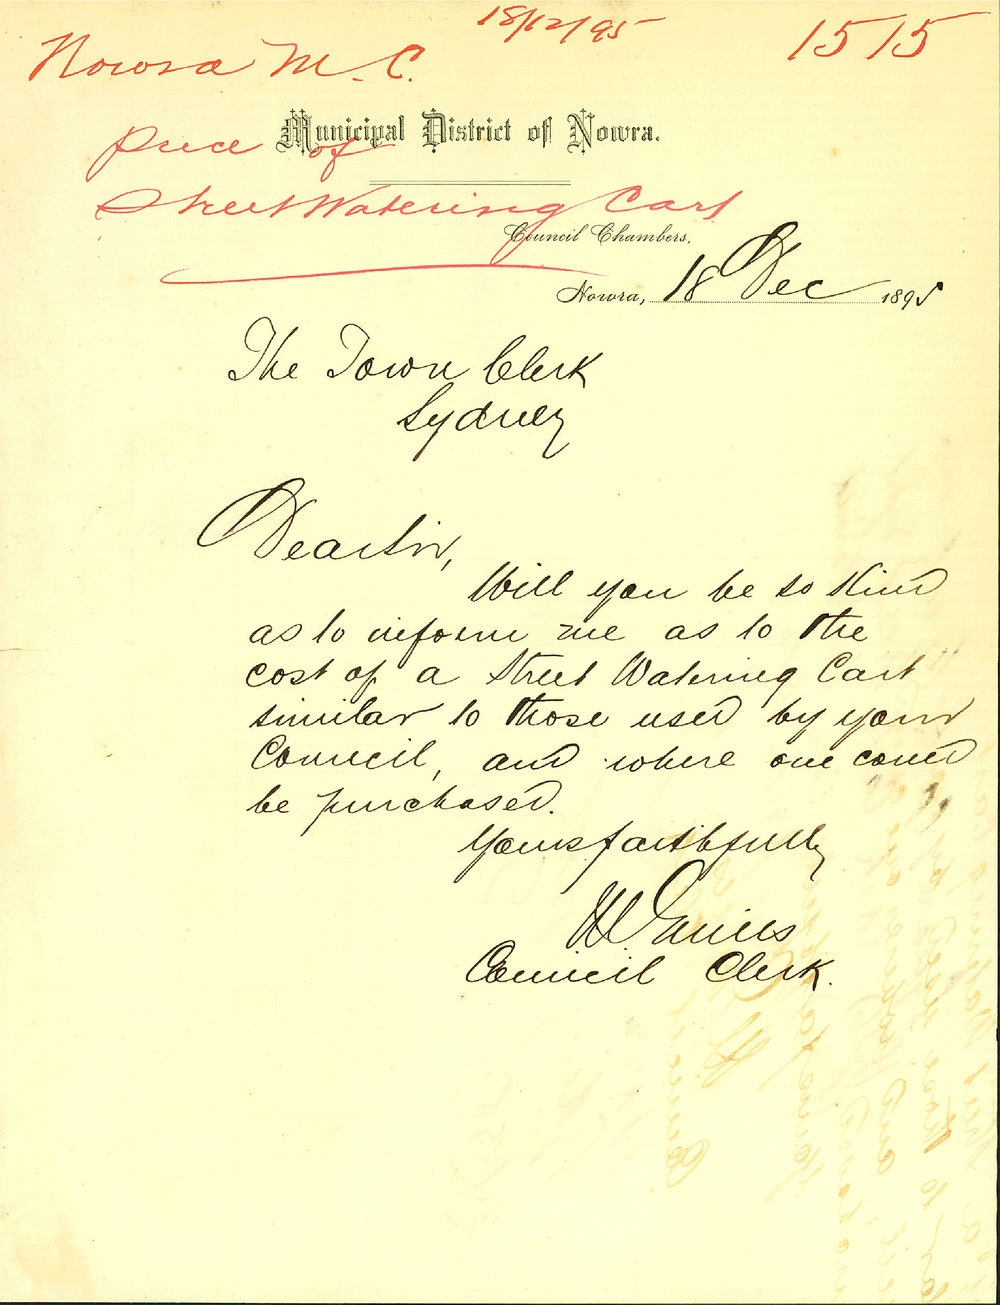 18/12/95
1515
Nowra M. C.
Municipal District of Nowra.
Price of
Street Watering Cart
Council Chambers,
Nowra, 18 Dec 1895
The Town Clerk
Sydney
Dear Sir,
Will you be so kind
as to inform me as to the
cost of a Street Watering Cart
similar to those used by your
Council, and where one could
be purchased.
Yours faithfully
Council Clerk.